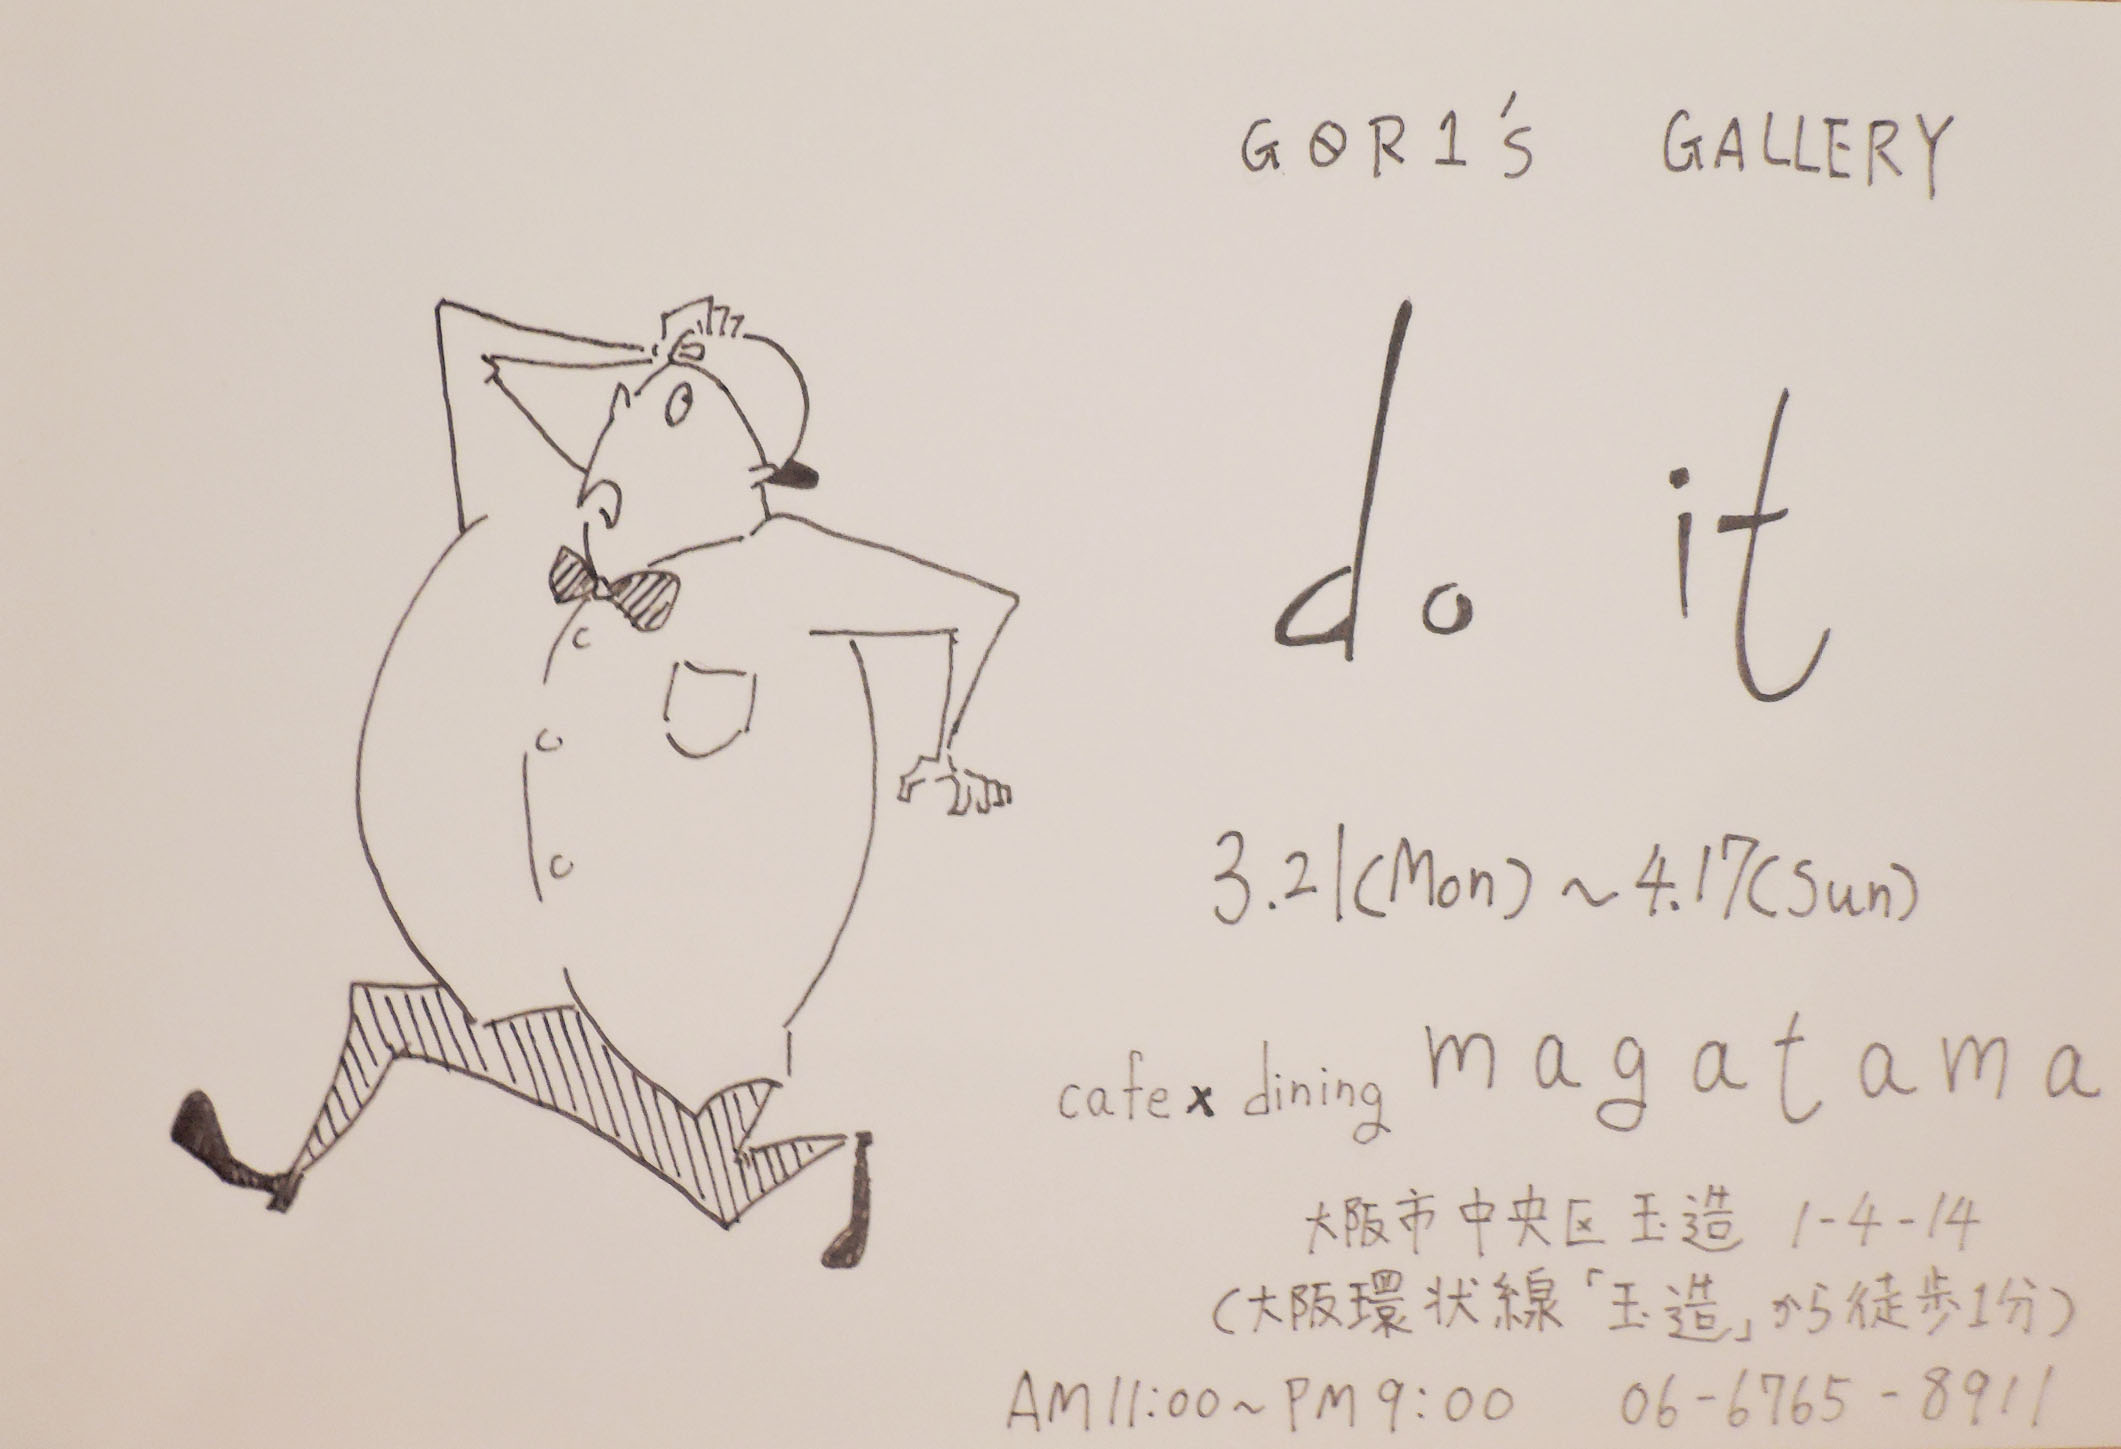 GØR1's GALLERY
do it
3.21(Mon)～4.17(Sun)
cafe x dining magatama
大阪市中央区玉造 1-4-14
(大阪環状線「玉造」から徒歩1分)
AM11:00～PM9:00 06-6765-8911